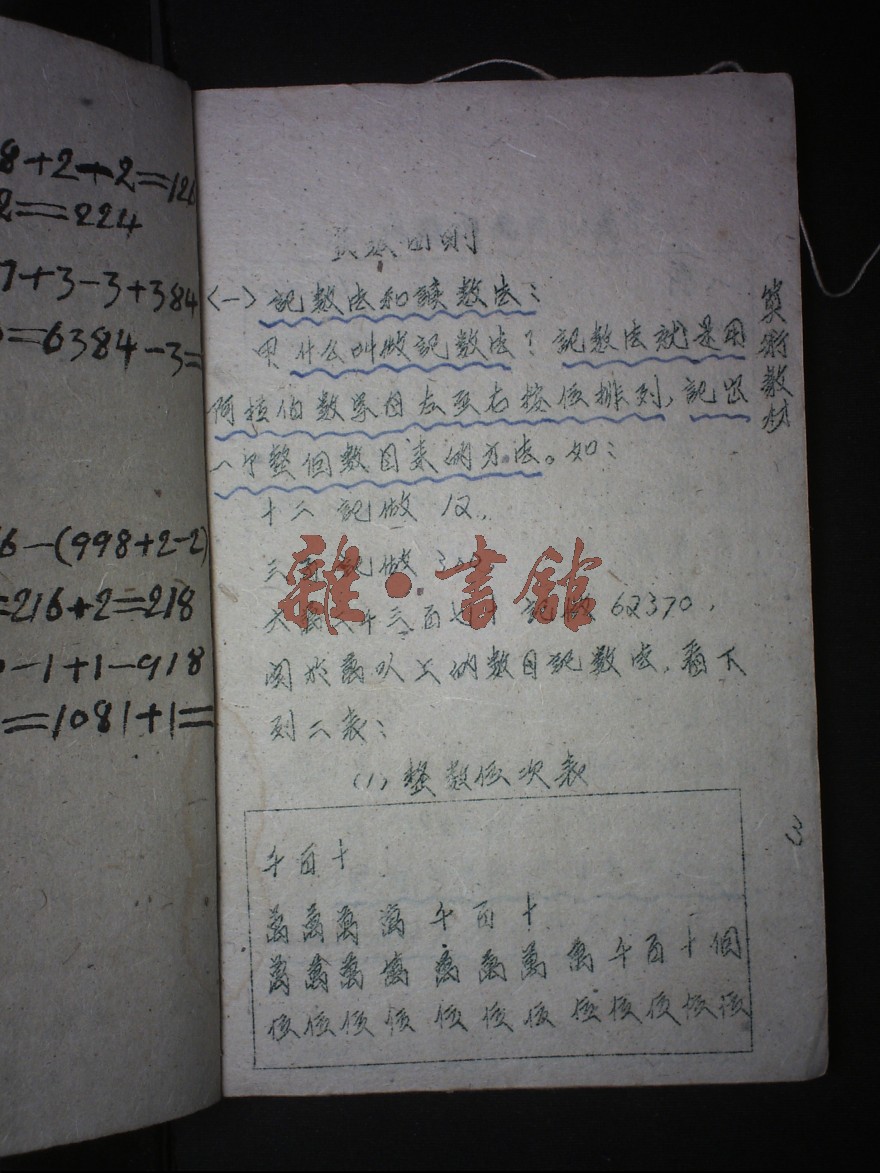 8+2+2=12
2=224
7+3-3+384
=6384-3=
6-(998+2-2)
=216+2=218
-1+1-918
=1081+1=
四則
〈一〉記数法和讀数法：
甲 什么叫做記数法？記数法就是用
阿拉伯数字由左至右按位排列，記出
一个整個数目来的方法。如：
十二 記做 12，
三百記做 3
六萬二千三百七十 記做 62370，
関於萬以上的数目記数法，看下
列二表：
(1) 整数位次表
千百十
萬萬萬萬千百十
萬萬萬萬萬萬萬萬千百十個
位位位位位位位位位位位位
算術教材
3
雜·書館